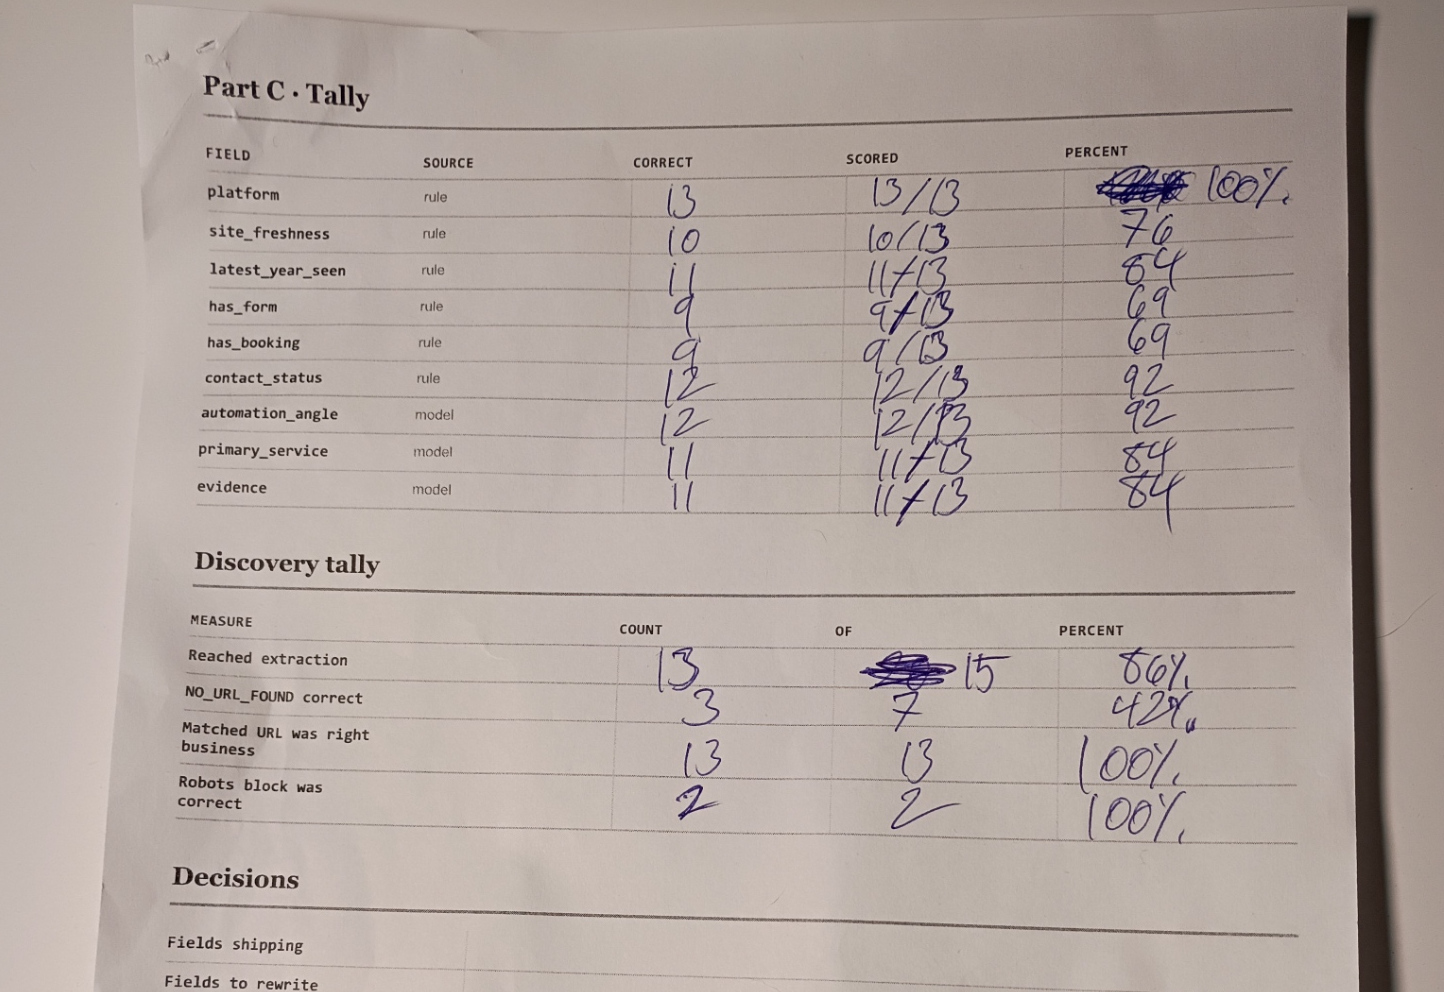 Part C · Tally
FIELD SOURCE CORRECT SCORED PERCENT
platform rule 13 13/13 100%.
site_freshness rule 10 10/13 76
latest_year_seen rule 11 11/13 84
has_form rule 9 9/13 69
has_booking rule 9 9/13 69
contact_status rule 12 12/13 92
automation_angle model 12 12/13 92
primary_service model 11 11/13 84
evidence model 11 11/13 84
Discovery tally
MEASURE COUNT OF PERCENT
Reached extraction 13 15 86%.
NO_URL_FOUND correct 3 7 42%.
Matched URL was right
business 13 13 100%.
Robots block was
correct 2 2 100%.
Decisions
Fields shipping
Fields to rewrite